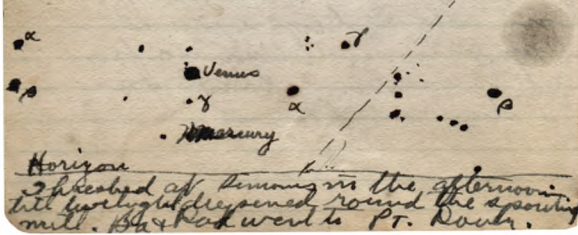 α γ
Venus
β γ α β
Mercury
Horizon
Threshed at Simmons in the afternoon
till twilight deepened round the spouting
mill. Pa & Dad went to Pt. Dover.